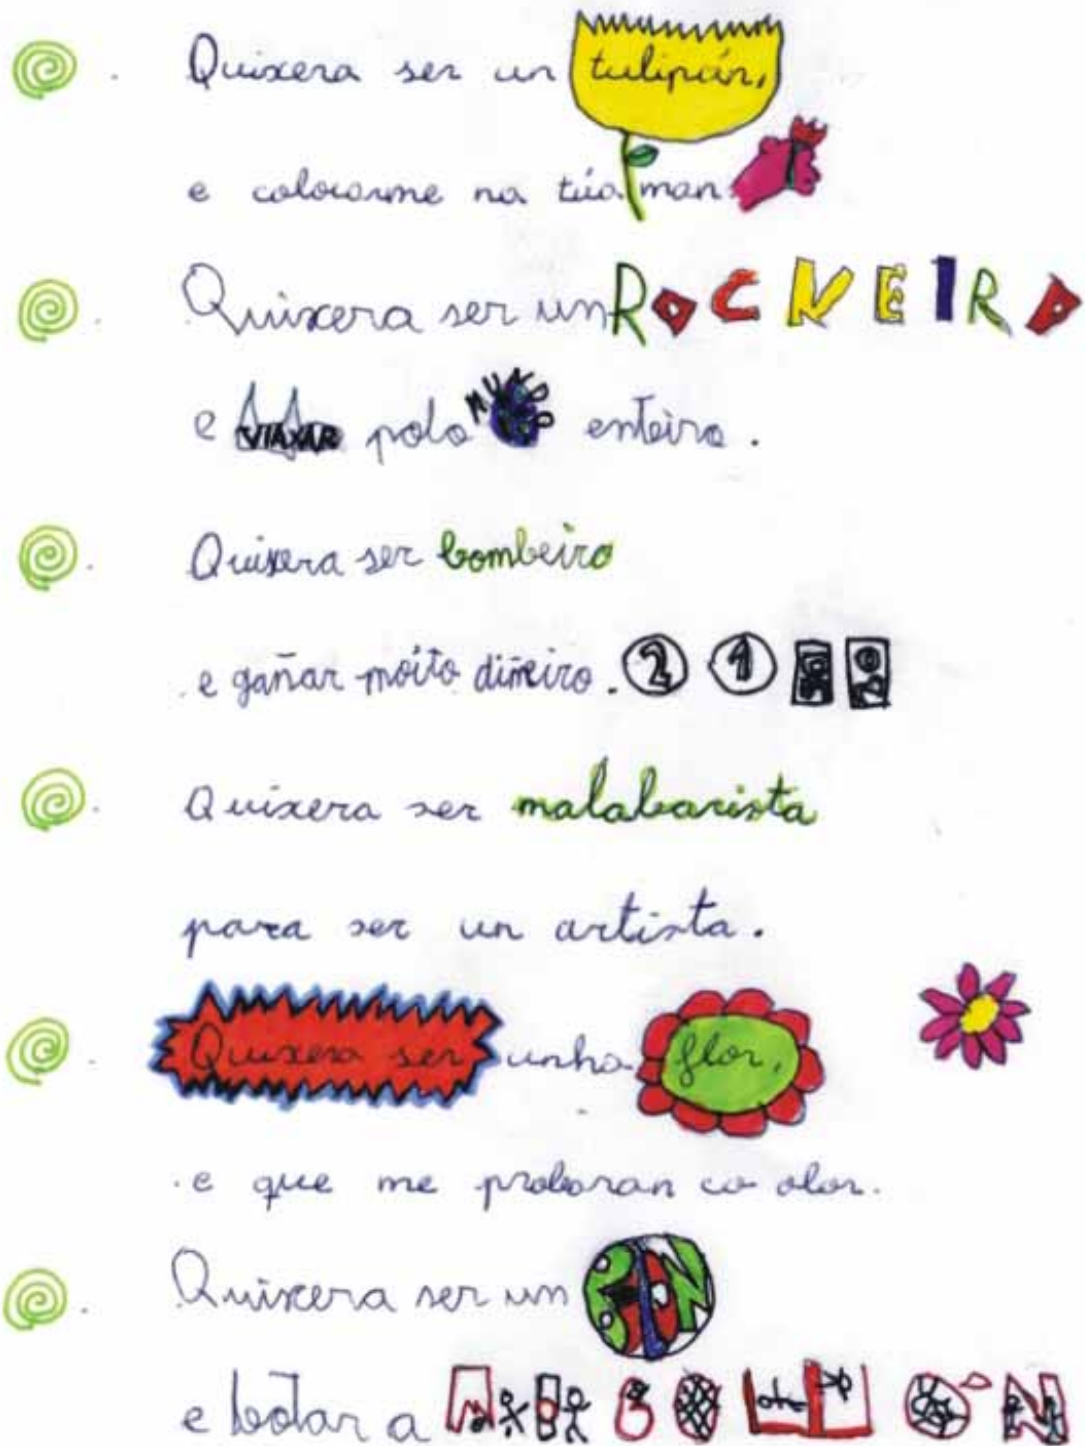 Quixera ser un tulipán,
e colocarme na túa man
Quixera ser un ROCNEIRO
e VIAXAR polo MUNDO enteiro.
Quixera ser bombeiro
e gañar moito diñeiro. 2 1
Quixera ser malabarista
para ser un artista.
Quixera ser unha flor,
e que me probaran co olor.
Quixera ser un
e botar a